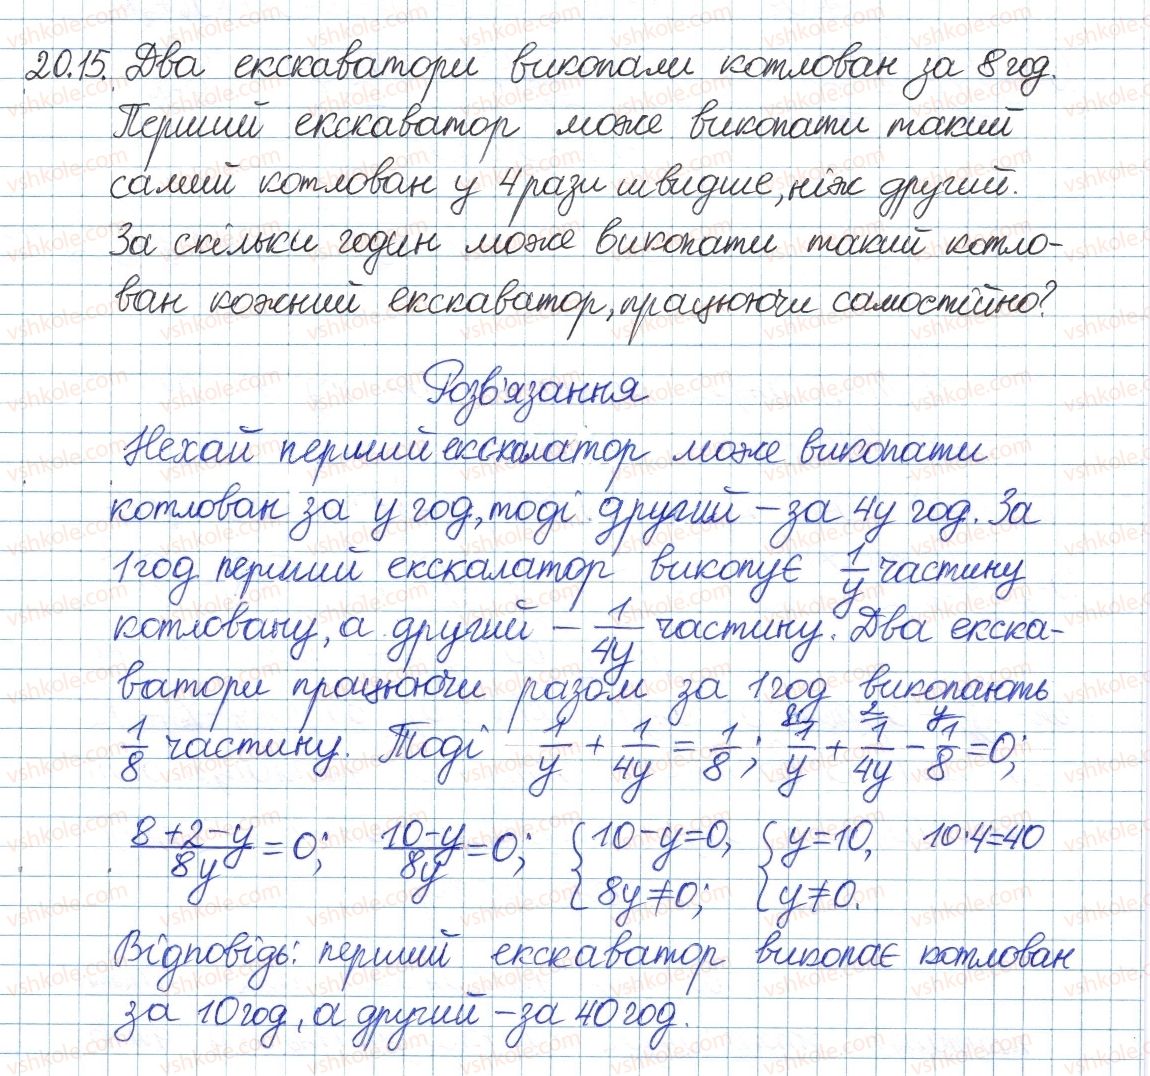 20.15. Два екскаватори викопали котлован за 8 год.
Перший екскаватор може викопати такий
самий котлован у 4 рази швидше, ніж другий.
За скільки годин може викопати такий котло-
ван кожний екскаватор, працюючи самостійно?
Розв'язання
Нехай перший екскалатор може викопати
котлован за y год, тоді другий – за 4y год. За
1 год перший екскалатор викопує 1/y частину
котловану, а другий – 1/4y частину. Два екска-
ватори працюючи разом за 1 год викопають
1/8 частину. Тоді 1/y + 1/4y = 1/8; 8/ 1/y + 2/ 1/4y – y/ 1/8 = 0;
(8+2–y)/8y = 0; (10–y)/8y = 0; { 10–y=0, 8y≠0; { y=10, y≠0. 10·4=40
Відповідь: перший екскаватор викопає котлован
за 10 год, а другий – за 40 год.